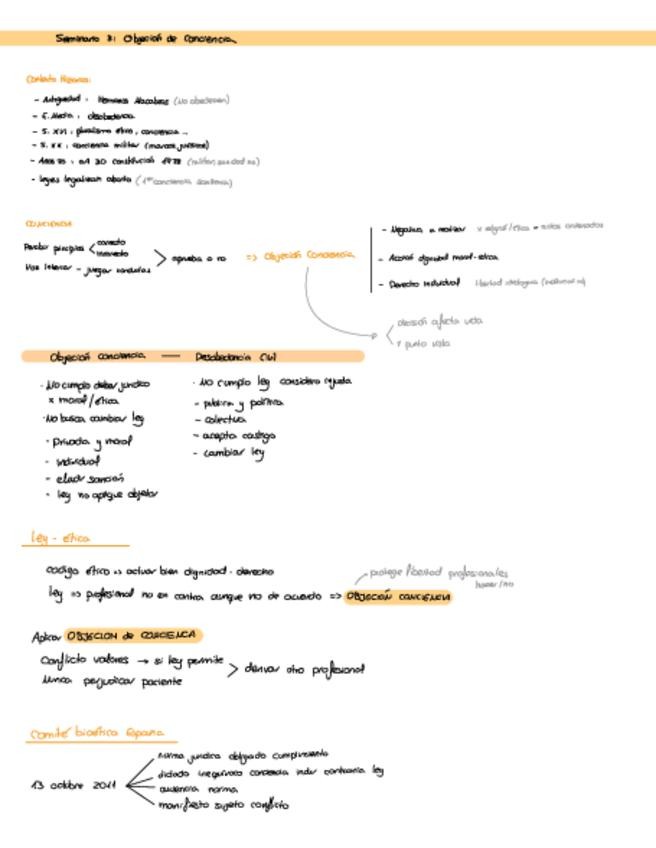 Seminario 3: Objeción de Conciencia
Contexto Histórico:
- Antigüedad: Hermanos Macabeos (No obedecen)
- E. Media: desobediencia
- S. XVI: pluralismo ético, conciencia...
- S. XX: conciencia militar
- art 30 constitución 1978
- leyes legalizan aborto (1ª conciencia sanitaria)
CONCIENCIA
Percibir principios < correcto
incorrecto
Voz interior - juzgar conductas > aprueba o no => Objeción Conciencia
- Negativa a realizar
- Acción dignidad moral-ética
- Derecho individual libertad ideológica
decisión afecta vida
Objeción conciencia — Desobediencia Civil
· No cumplo deber jurídico
x moral/ética
· No busca cambiar ley
- Privada y moral
- individual
- eludir sanción
- ley no aplique objetor
· No cumplo ley considero injusta
- pública y política
- colectiva
- acepto castigo
- cambiar ley
Ley - ética
código ético => actuar bien dignidad - derecho
ley => profesional no en contra aunque no de acuerdo => OBJECIÓN CONCIENCIA
protege libertad profesionales
hacer/no
Aplicar OBJECIÓN de CONCIENCIA
Conflicto valores → si ley permite
Nunca perjudicar paciente > derivar otro profesional
Comité bioética España
13 octubre 2011
norma jurídica obligado cumplimiento
dictado inequívoco conciencia indiv contraria ley
ausencia norma
manifiesto sujeto conflicto